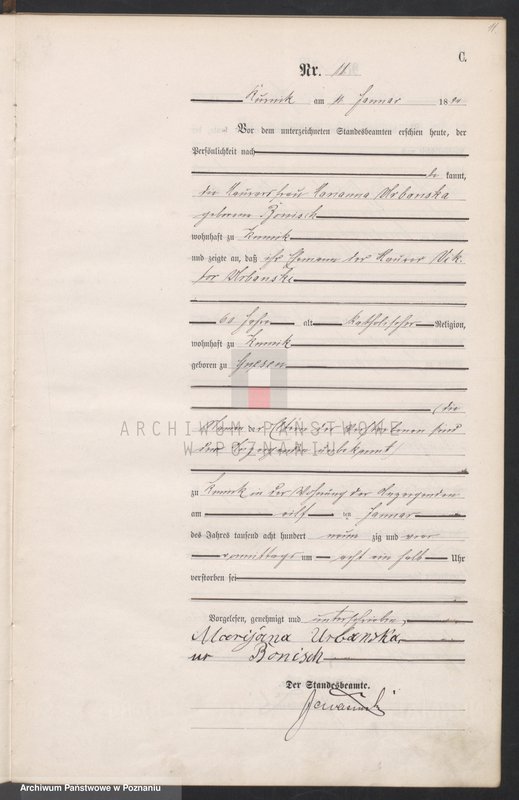 11
C.
Nr. 11
Kurnik am 11 Januar 1894
Vor dem unterzeichneten Standesbeamten erschien heute, der
Persönlichkeit nach
be kannt,
die Maurersfrau Marianna Urbanska
geborene Bönisch
wohnhaft zu Kurnik
und zeigte an, daß ihr Ehemann der Maurer Vik-
tor Urbanski
60 Jahre alt katholischer Religion,
wohnhaft zu Kurnik
geboren zu Gnesen
(die
Namen der Eltern des Verstorbenen sind
dem Anzeigenden unbekannt)
zu Kurnik in der Wohnung der Anzeigenden
am elften Januar
des Jahres tausend acht hundert neun zig und vier
Vormittags um acht ein halb Uhr
verstorben sei
Vorgelesen, genehmigt und unterschrieben
Marijana Urbanska
ur Bonisch
Der Standesbeamte.
ARCHIWUM PAŃSTWOWE
W POZNANIU
Archiwum Państwowe w Poznaniu